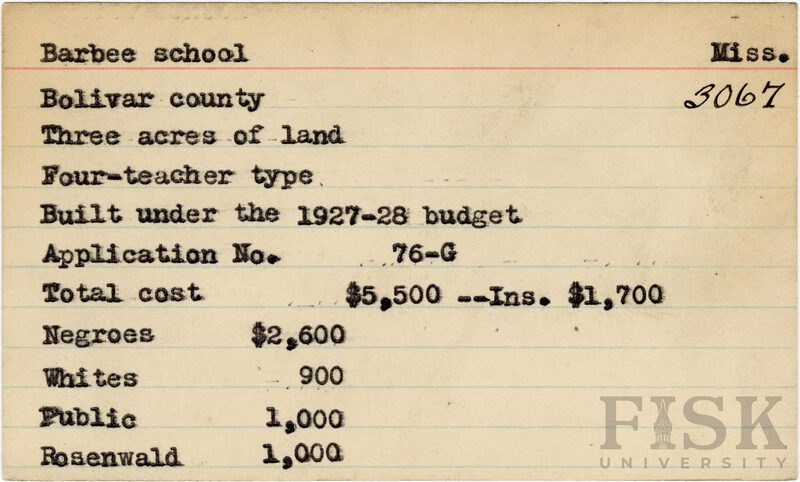 Barbee school Miss.
Bolivar county 3067
Three acres of land
Four-teacher type
Built under the 1927-28 budget
Application No. 76-G
Total cost $5,500 --Ins. $1,700
Negroes $2,600
Whites 900
Public 1,000
Rosenwald 1,000
FISK
UNIVERSITY